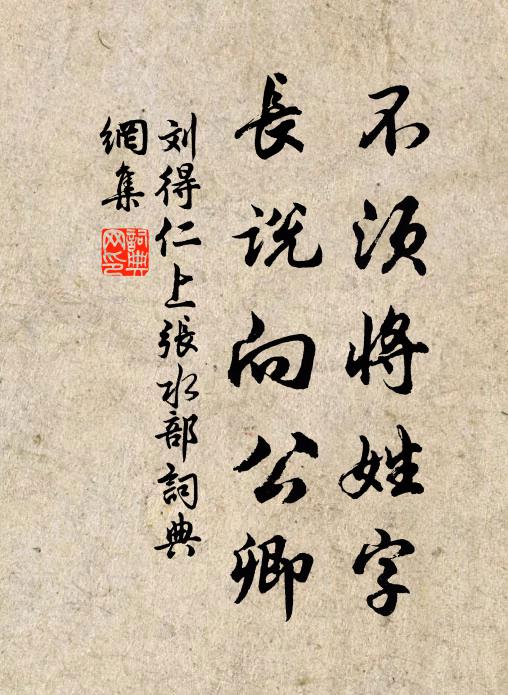 不須將姓字
長説向公卿
刘得仁上張水部詞典
網集
詞典
网印